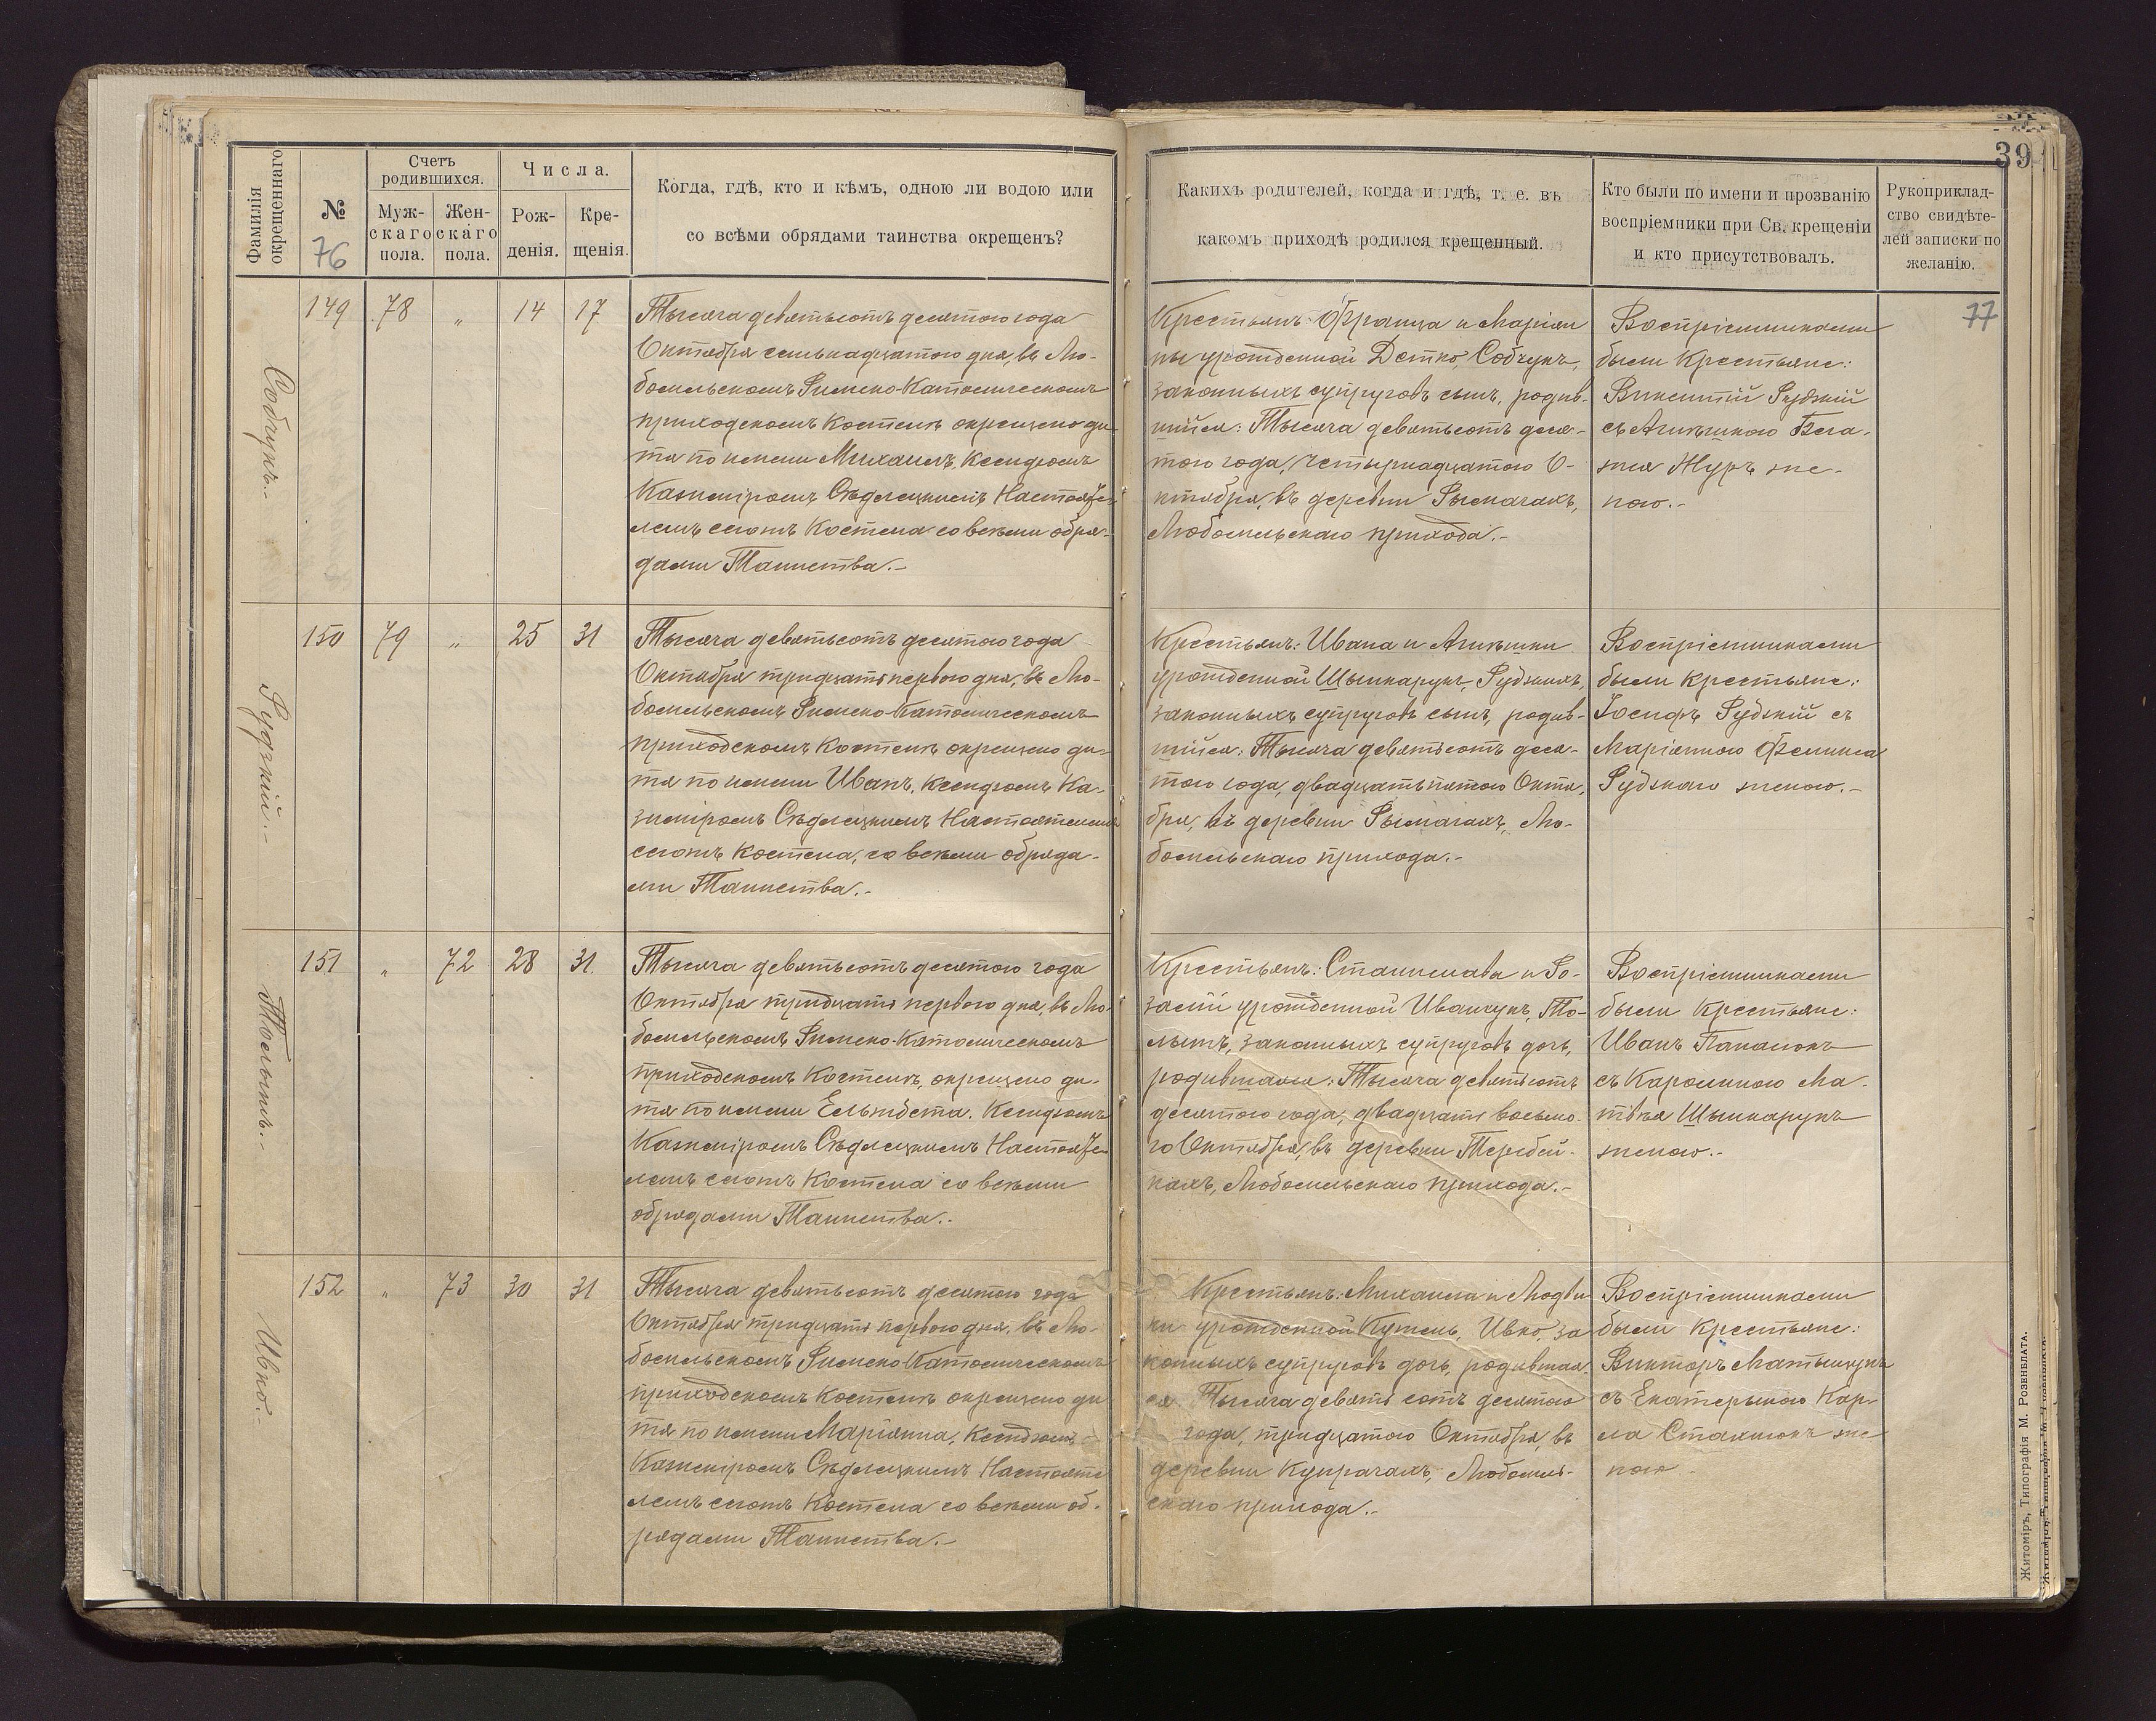 39
Фамилія
окрещеннаго
№
76
Счетъ
родившихся.
Муж-
скаго
пола.
Жен-
скаго
пола.
Числа.
Рож-
денія.
Кре-
щенія.
Когда, гдѣ, кто и кѣмъ, одною ли водою или
со всѣми обрядами таинства окрещенъ?
Какихъ родителей, когда и гдѣ, т. е. въ
какомъ приходѣ родился крещенный.
Кто были по имени и прозванію
воспріемники при Св. крещеніи
и кто присутствовалъ.
Рукоприклад-
ство свидѣте-
лей записки по
желанію.
77
Собчукъ.-
149 78 " 14 17
Тысяча девятьсотъ десятого года
Октября семьнадцатого дня, въ Лю-
бомльскомъ Римско-Католическомъ
приходскомъ Костелѣ окрещено ди-
тя по имени Михаилъ, Ксендзомъ
Казиміромъ Сѣдлецкимъ Настояте-
лемъ сего-тъ Костела со всѣми обря-
дами Таинства.-
Крестьянъ: Франца и Маріан
ны урожденной Детко, Собчукъ,
законныхъ супруговъ сынъ, родив-
шійся: Тысяча девятьсотъ деся-
того года, Четырнадцатого О-
ктября, въ деревни Рымачахъ,
Любомльскаго прихода.-
Воспріемниками
были Крестьяне:
Викентій Рудзкій
съ Агнѣшкою Бла-
жея Журъ же-
ною.-
Рудзкій.-
150 79 " 25 31
Тысяча девятьсотъ десятого года
Октября тридцать первого дня, въ Лю-
бомльскомъ Римско-Католическомъ
приходскомъ Костелѣ окрещено ди-
тя по имени Иванъ, Ксендзомъ Ка-
зиміромъ Сѣдлецкимъ Настоятелемъ
сего-тъ Костела, со всѣми обряда-
ми Таинства.-
Крестьянъ: Ивана и Агнѣшки
урожденной Шынкарукъ, Рудзкихъ,
законныхъ супруговъ сынъ, родив-
шійся: Тысяча девятьсотъ деся-
того года, двадцать пятого Октя-
бря, въ деревни Рымачахъ, Лю-
бомльскаго прихода.-
Воспріемниками
были Крестьяне:
Іосифъ Рудзкій съ
Маріянною Феликса
Рудзкаго женою.-
151 " 72 28 31
Тысяча девятьсотъ десятого года
Октября тридцать первого дня, въ Лю-
бомльскомъ Римско-Католическомъ
приходскомъ Костелѣ, окрещено ди-
тя по имени Ельжбета. Ксендзомъ
Казиміромъ Сѣдлецкимъ Настояте-
лемъ сего-тъ Костела со всѣми
обрядами Таинства.-
Крестьянъ: Станислава и Ро-
заліи урожденной Иванчукъ,
законныхъ супруговъ дочь,
родившаяся: Тысяча девятьсотъ
десятого года, двадцать восьмо-
го Октября, въ деревни Теребей-
кахъ, Любомльскаго прихода.-
Воспріемниками
были Крестьяне:
Иванъ Панасюкъ
съ Каролиною Ма-
твѣя Шынкарукъ
женою.-
Ивко.-
152 " 73 30 31
Тысяча девятьсотъ десятого года
Октября тридцать первого дня, въ Лю-
бомльскомъ Римско-Католическомъ
приходскомъ Костелѣ окрещено ди
тя по имени Маріянна, Ксендзомъ
Казиміромъ Сѣдлецкимъ Настояте
лемъ сего-тъ Костела со всѣми об-
рядами Таинства.-
Крестьянъ: Михаила и Людви
ки урожденной Кутель, Ивко, за
конныхъ супруговъ дочь, родившая
ся. Тысяча девятьсотъ десятого
года, тридцатого Октября, въ
деревни Купрачахъ, Любомль-
скаго прихода.-
Воспріемниками
были Крестьяне:
Викторъ Матыщукъ
съ Екатерыною Кар-
ла Стахнюкъ же
ною.-
Житоміръ, Типографія М. Розенблата.